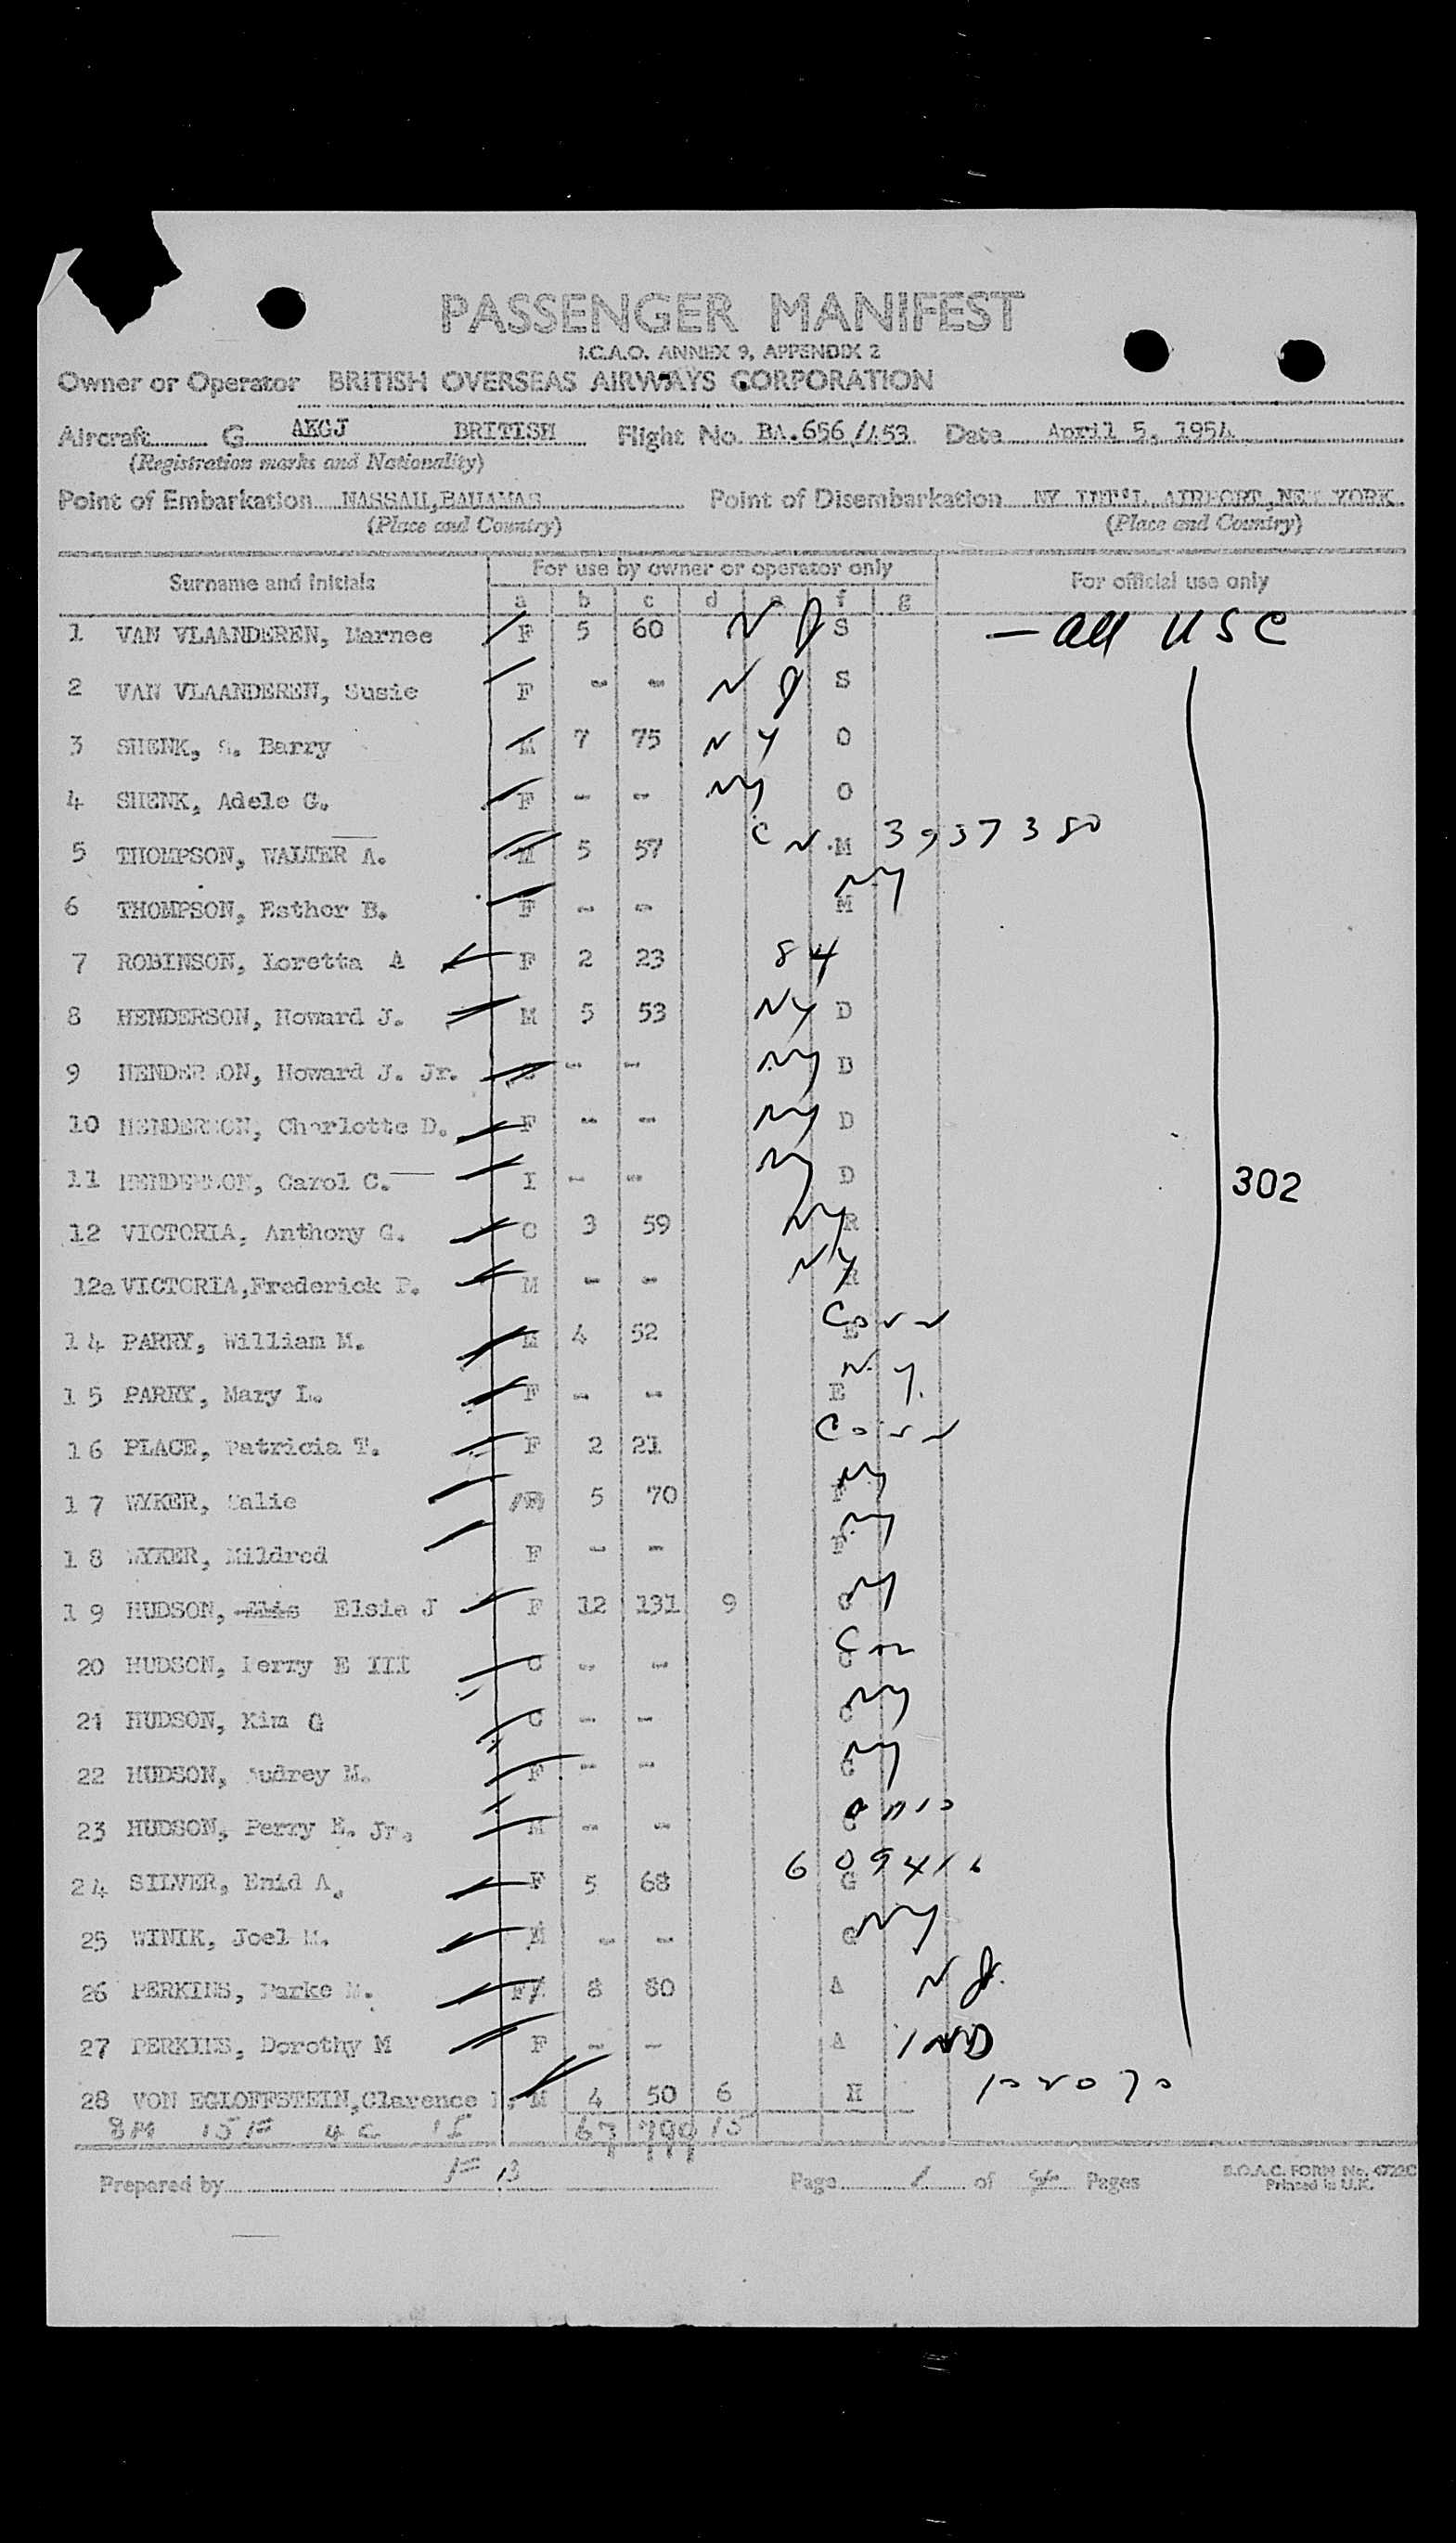 PASSENGER MANIFEST
I.C.A.O. ANNEX 9, APPENDIX 2
Owner or Operator BRITISH OVERSEAS AIRWAYS CORPORATION
Aircraft G AKGJ BRITISH Flight No. BA.656/453 Date April 5, 1954
(Registration marks and Nationality)
Point of Embarkation NASSAU,BAHAMAS Point of Disembarkation NY INT'L AIRPORT,NEW YORK
(Place and Country) (Place and Country)
Surname and initials For use by owner or operator only For official use only
a b c d e f g
1 VAN VLAANDEREN, Marnee F 5 60 N J S — all USC
2 VAN VLAANDEREN, Susie F - - N J S
3 SHENK, Barry M 7 75 N Y O
4 SHENK, Adele G. F - - NY O
5 THOMPSON, WALTER A. M 5 57 C N M 3937380
6 THOMPSON, Esther B. F - - NY M
7 ROBINSON, Loretta A F 2 23 84
8 HENDERSON, Howard J. M 5 53 NY D
9 HENDERSON, Howard J. Jr. - - NY D
10 HENDERSON, Charlotte D. F - - NY D
11 HENDERSON, Carol C. I - - NY D
302
12 VICTORIA, Anthony G. C 3 59 NY R
12a VICTORIA,Frederick P. M - - NY R
14 PARRY, William M. M 4 52 Conn E
15 PARRY, Mary L. F - - N.Y. E
16 PLACE, Patricia T. F 2 21 Conn
17 WYKER, F 5 70 NY F
18 WYKER, Mildred F - - NY F
19 HUDSON, Elsie J F 12 131 9 NY C
20 HUDSON, Perry E III C - - C
21 HUDSON, Kim G C - - NY C
22 HUDSON, Audrey M. F - - NY C
23 HUDSON, Perry E. Jr. M - - C
24 SILVER, Enid A. F 5 68 G
25 WINIK, Joel M. M - - NY G
26 PERKINS, Parke M. F 8 80 A N J.
27 PERKINS, Dorothy M F - - A IND
28 VON EGLOFFSTEIN,Clarence M 4 50 6 H
8M 15F 4C 1I 67 15
Prepared by Page 1 of Pages
B.O.A.C. FORM No. 4722C
Printed in U.K.